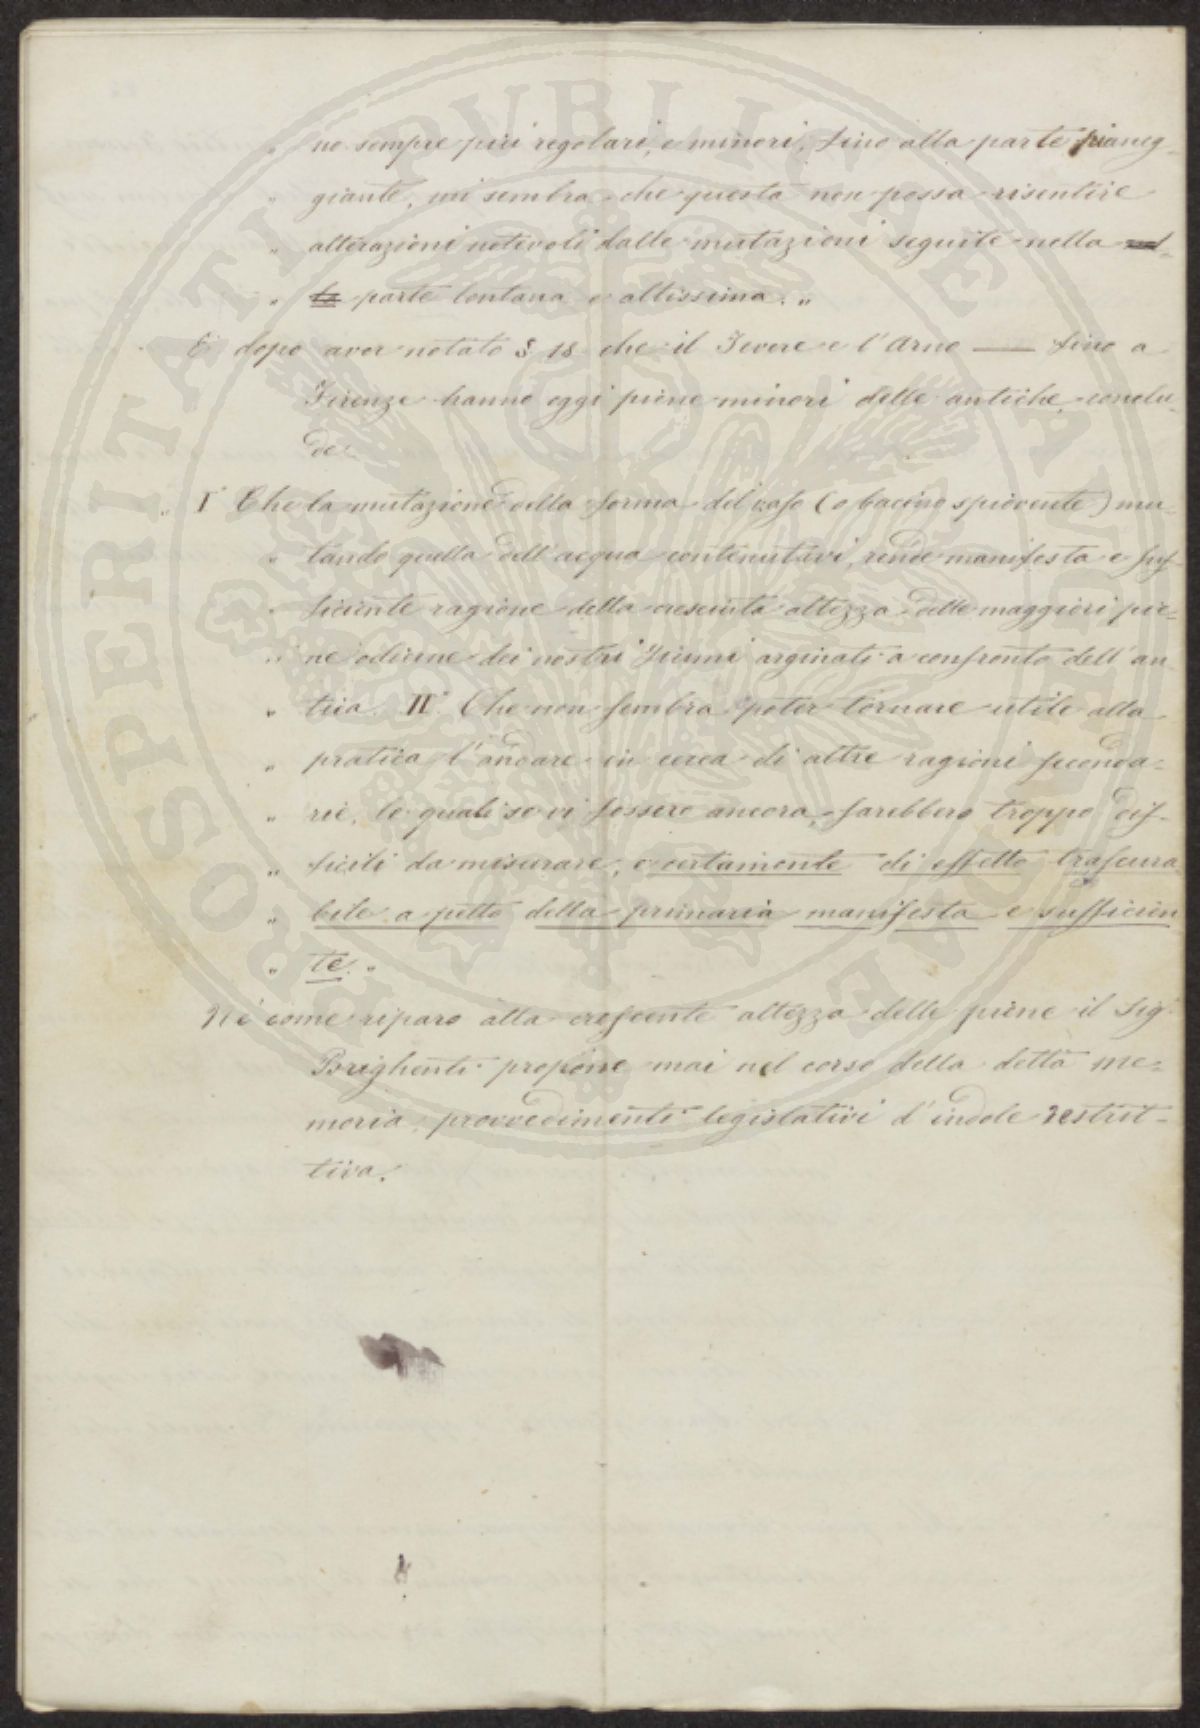 „ no sempre più regolari, e minori, fino alla parte pianeg-
„ giante, mi sembra che questa non possa risentire
„ alterazioni notevoli dalle mutazioni seguite nella
„ parte lontana e altissima. „
E dopo aver notato § 18 che il Tevere e l'Arno — fino a
Firenze hanno oggi piene minori delle antiche, conclu-
de:
„ I° Che la mutazione della forma del vaso (o bacino spiovente) mu-
„ tando quella dell'acqua contenutavi, rende manifesta e suf-
„ ficiente ragione della cresciuta altezza delle maggiori pie-
„ ne odierne dei nostri fiumi arginati a confronto dell'an-
„ tica. II° Che non sembra poter tornare utile alla
„ pratica l'andare in cerca di altre ragioni seconda-
„ rie, le quali se vi fossero ancora, sarebbero troppo dif-
„ ficili da misurare, e certamente di effetto trascura
„ bile a petto della primaria manifesta e sufficien
„ te. „
Nè come riparo alla crescente altezza delle piene il Sig.
Brighenti propone mai nel corso della detta me-
moria, provvedimenti legislativi d'indole restrit-
tiva.
PROSPERITATI PVBLICAE AVGENDAE